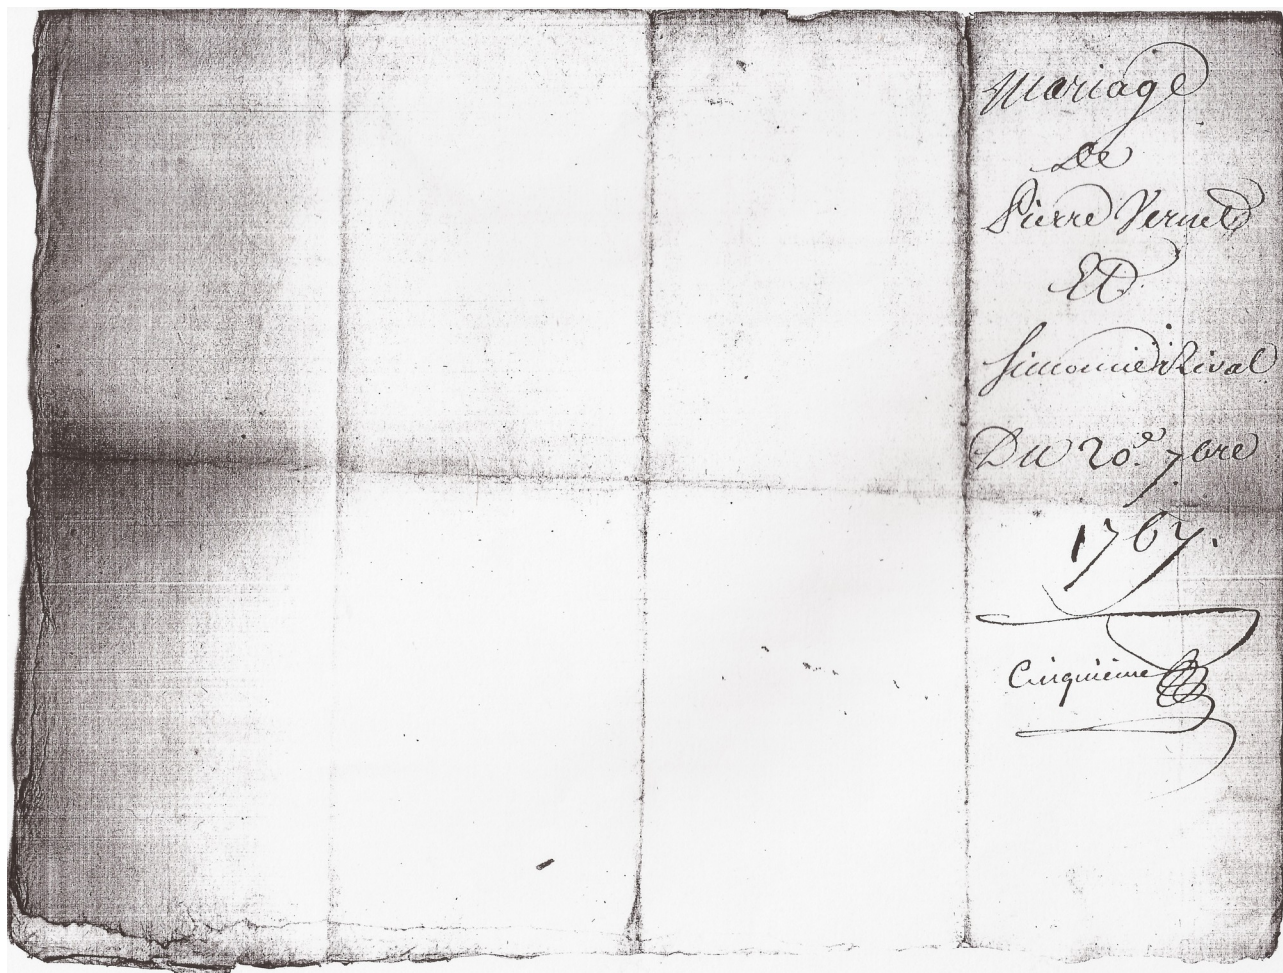 Mariage
De
Pierre Vernet
Et
Simonne Rival
Du 20e. 7bre
1767.
Cinquième